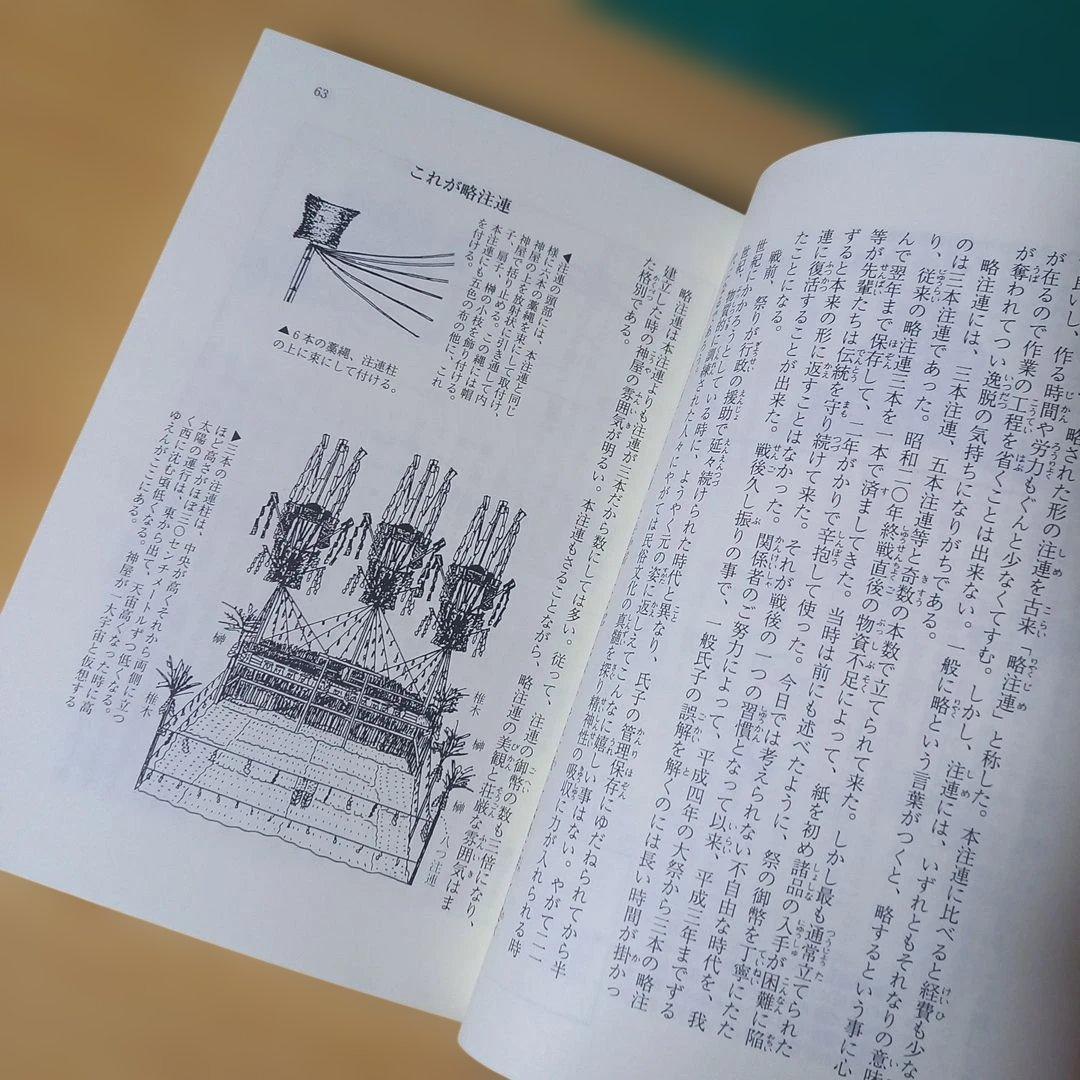 略された形の注連を古来「略注連」と称した。本注連に比べると経費も少な
良いし、作る時間や労力もぐんと少なくてすむ。しかし、注連には、いずれともそれなりの意味
が在るので作業の工程を省くことは出来ない。一般に略という言葉がつくと、略するという事に心
が奪われてつい逸脱の気持ちになりがちである。
略注連には、三本注連、五本注連等と奇数の本数で立てられて来た。しかし最も通常立てられた
のは三本注連であった。昭和二〇年終戦直後の物資不足によって、紙を初め諸品の入手が困難に陥
り、従来の略注連三本を一本で済ましてきた。当時は前にも述べたように、祭の御幣を丁寧にたた
んで翌年まで保存して、二年がかりで辛抱して使った。今日では考えられない不自由な時代を、我
等が先輩たちは伝統を守り続けて来た。それが戦後の一つの習慣となって以来、平成三年までずる
ずると本来の形に返すことはなかった。関係者のご努力によって、平成四年の大祭から三本の略注
連に復活することが出来た。戦後久し振りの事で、一般氏子の誤解を解くのには長い時間が掛かっ
たことになる。
戦前、祭りが行政の援助で延々続けられた時代と異なり、氏子の管理保存にゆだねられてから半
世紀にかかろうとしている時に、ようやく元の姿に返しえてこんなに嬉しい事はない。やがて二一
世紀、物質的に訓練された人々にやがては民俗文化の真髄を 精神性の吸収に力が入れられる時
63
略注連は本注連よりも注連が三本だから数にしては多い。従って、注連の御幣の数も三倍になり、
建立した時の神屋の雰囲気が明るい。本注連もさることながら、略注連の美観と荘厳な雰囲気はま
た格別である。
これが略注連
◀注連の頭部には、本注連と同じ
様に六本の藁縄を束にして取付け、
神屋の上を放射状に引き通して内
子で括り止める。この縄には帽
子、扇子、榊の小枝を飾り付ける。
本注連にも五色の布の他に、これ
を付ける。
▲6本の藁縄、注連柱
の上に束にして付ける。
▶三本の注連柱は、中央が高くそれから両側に立つ
ほど高さがほぼ三〇センチメートルずつ低くなる。
太陽の運行は、東から出て、天宙高くなった時に高
く西に沈む頃低くなる。神屋が一大宇宙と仮想する
ゆえんがここにある。
榊
椎木
椎木
榊
榊
八つ注連